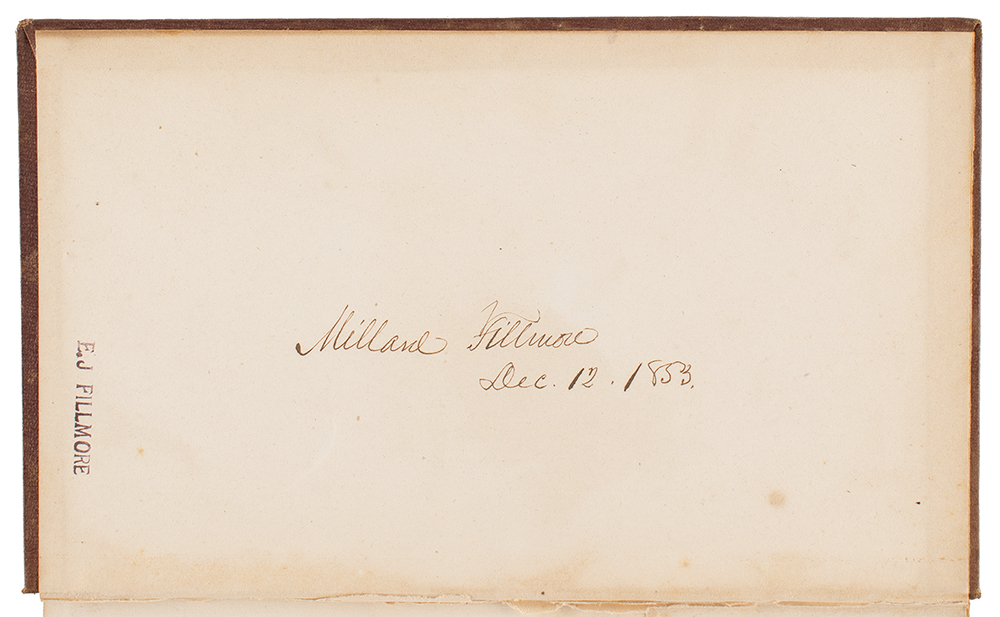 Millard Fillmore
Dec. 12. 1853.
E.J FILLMORE